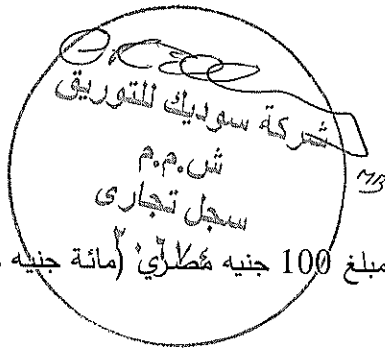 شركة سوديك للتوريق
ش.م.م
سجل تجارى
مبلغ 100 جنيه مصري (مائة جنيه
MB